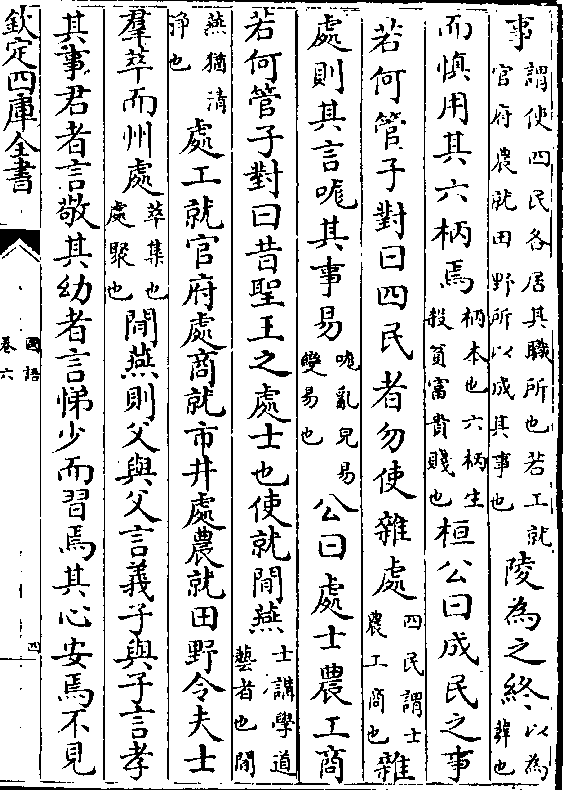 事謂使四民各居其職所也若工就官府農就田野所以成其事也陵為之終以為葬也
而慎用其六柄焉柄本也六柄生殺貧富貴賤也桓公曰成民之事
若何管子對曰四民者勿使雜處四民謂士農工商也雜
處則其言哤其事易哤亂皃易變易也公曰處士農工商
若何管子對曰昔聖王之處士也使就閒燕士講學道藝者也閒
燕猶清淨也處工就官府處商就市井處農就田野令夫士
羣萃而州處萃集也處聚也閒燕則父與父言義子與子言孝
其事君者言敬其幼者言悌少而習焉其心安焉不見
欽定四庫全書
國語
卷六
四